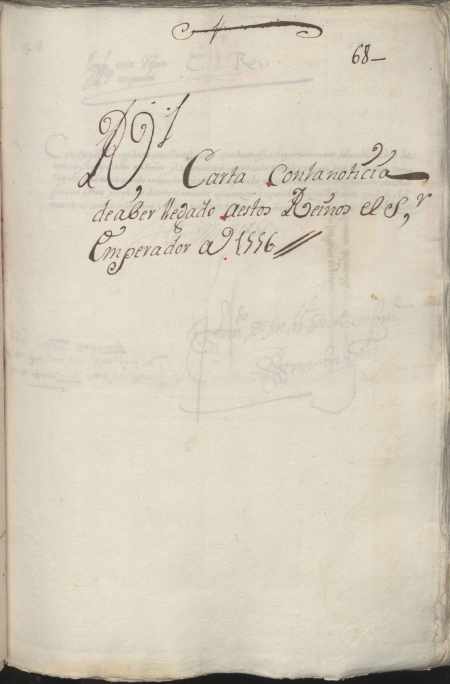 68
Rl, Carta Con la noticia
de aber llegado a estos Reinos el S,r
Emperador aº 1556